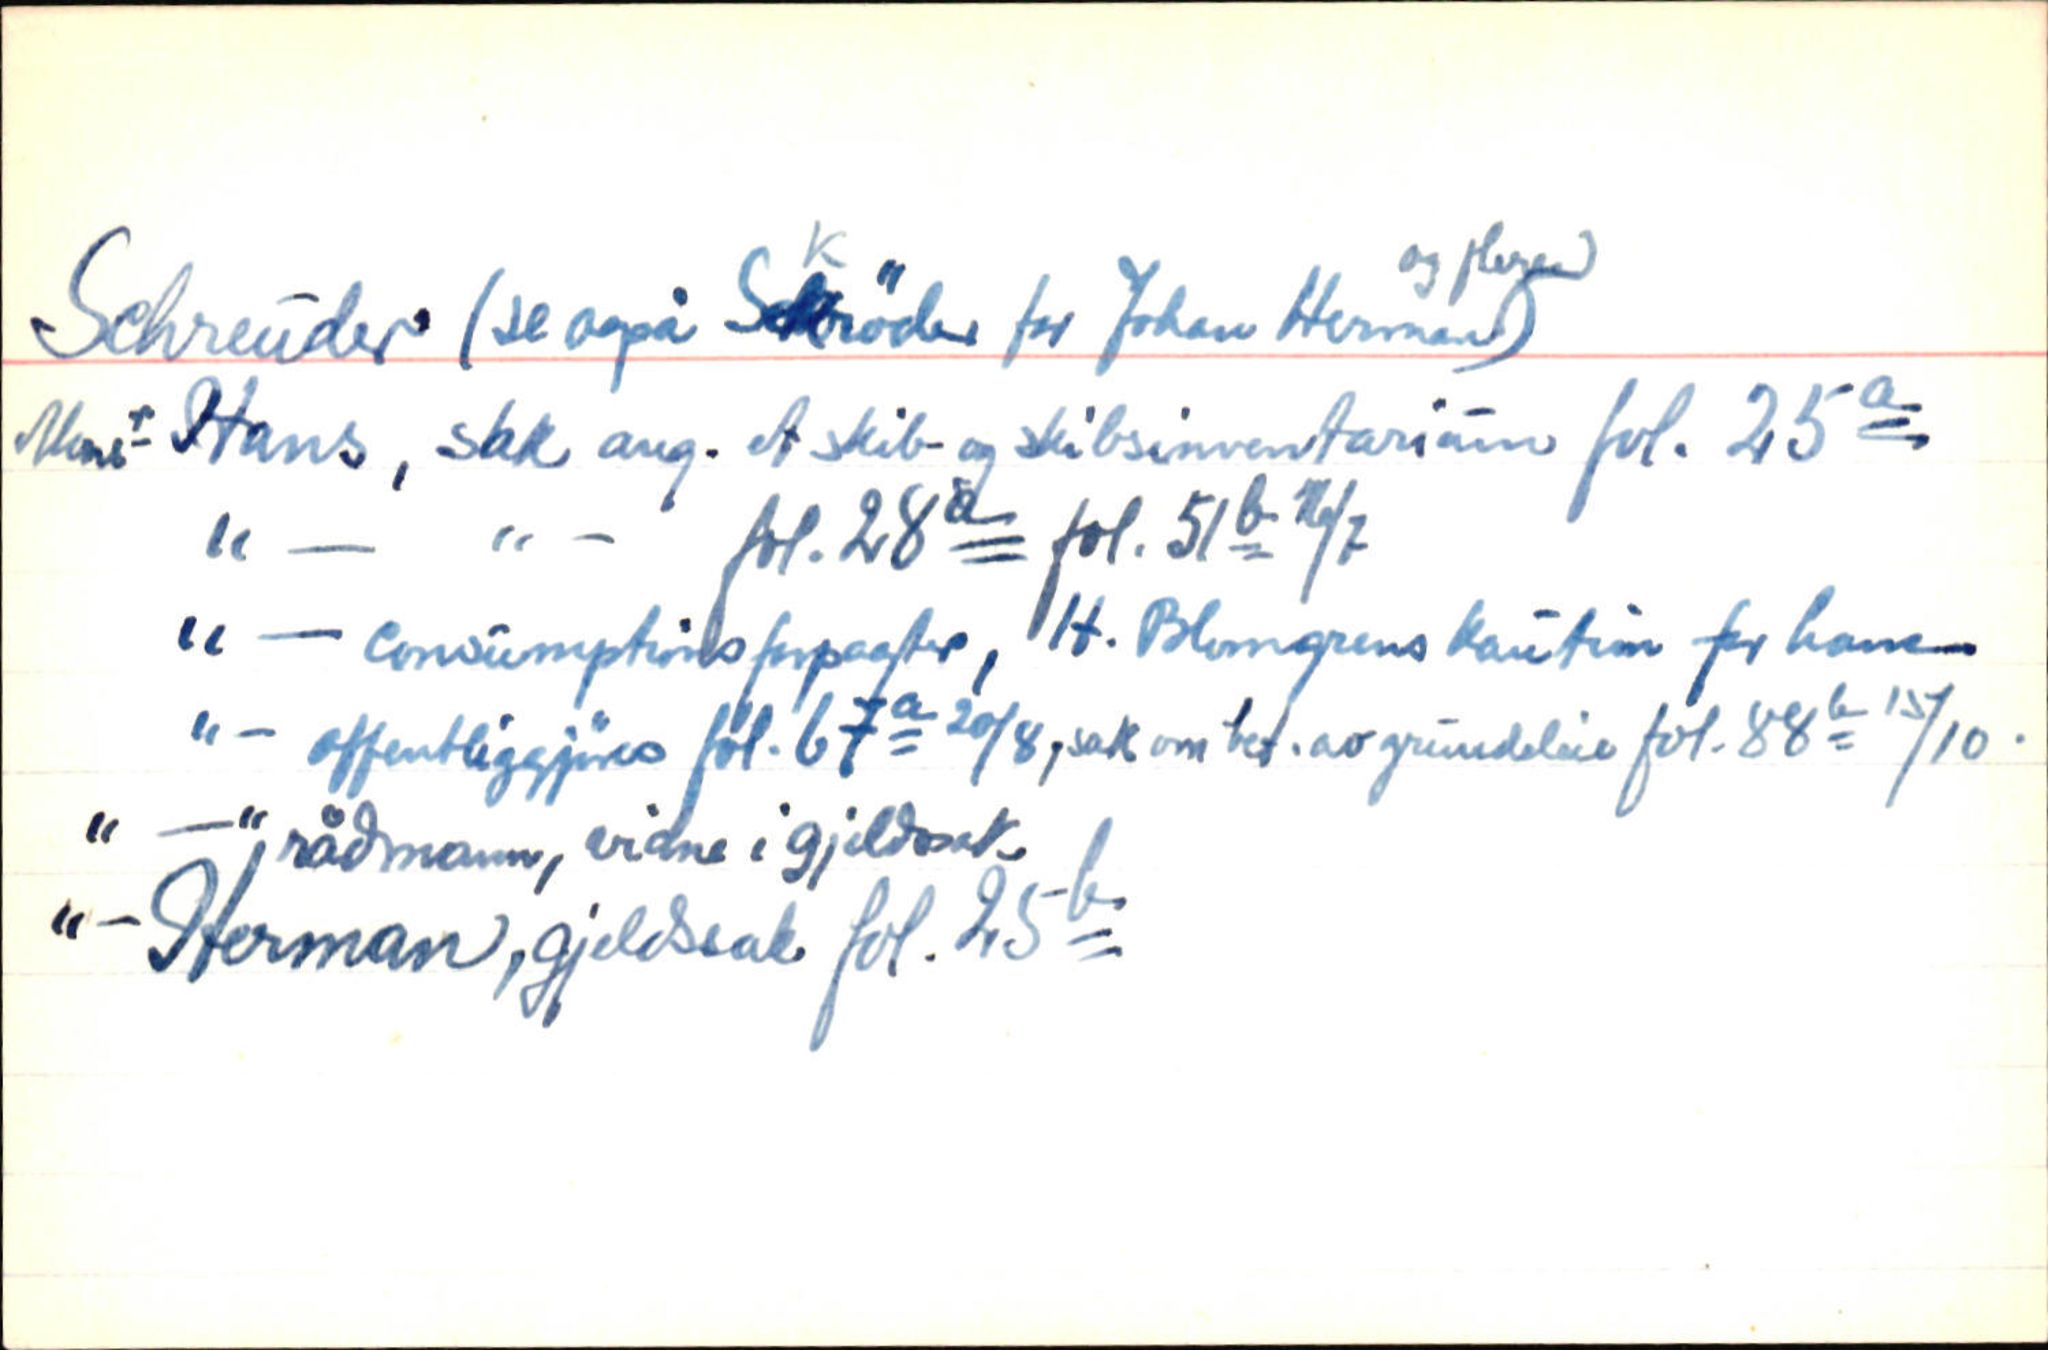 Schreuder (se også Skröder for Johan Herman og flere)
Mons.r Hans, sak ang. et skib- og skibsinventarium fol. 25a
" — " — fol. 28a fol. 51b /7
" — Consumptionsforpagter, H. Blomgrens kaution for ham
" — offentliggjöres fol. 67a 20/8, sak om bet. av grundeleie fol. 88b 15/10.
" — ", rådmann, vidne i gjeldssak
" — Herman, gjeldssak fol. 25b